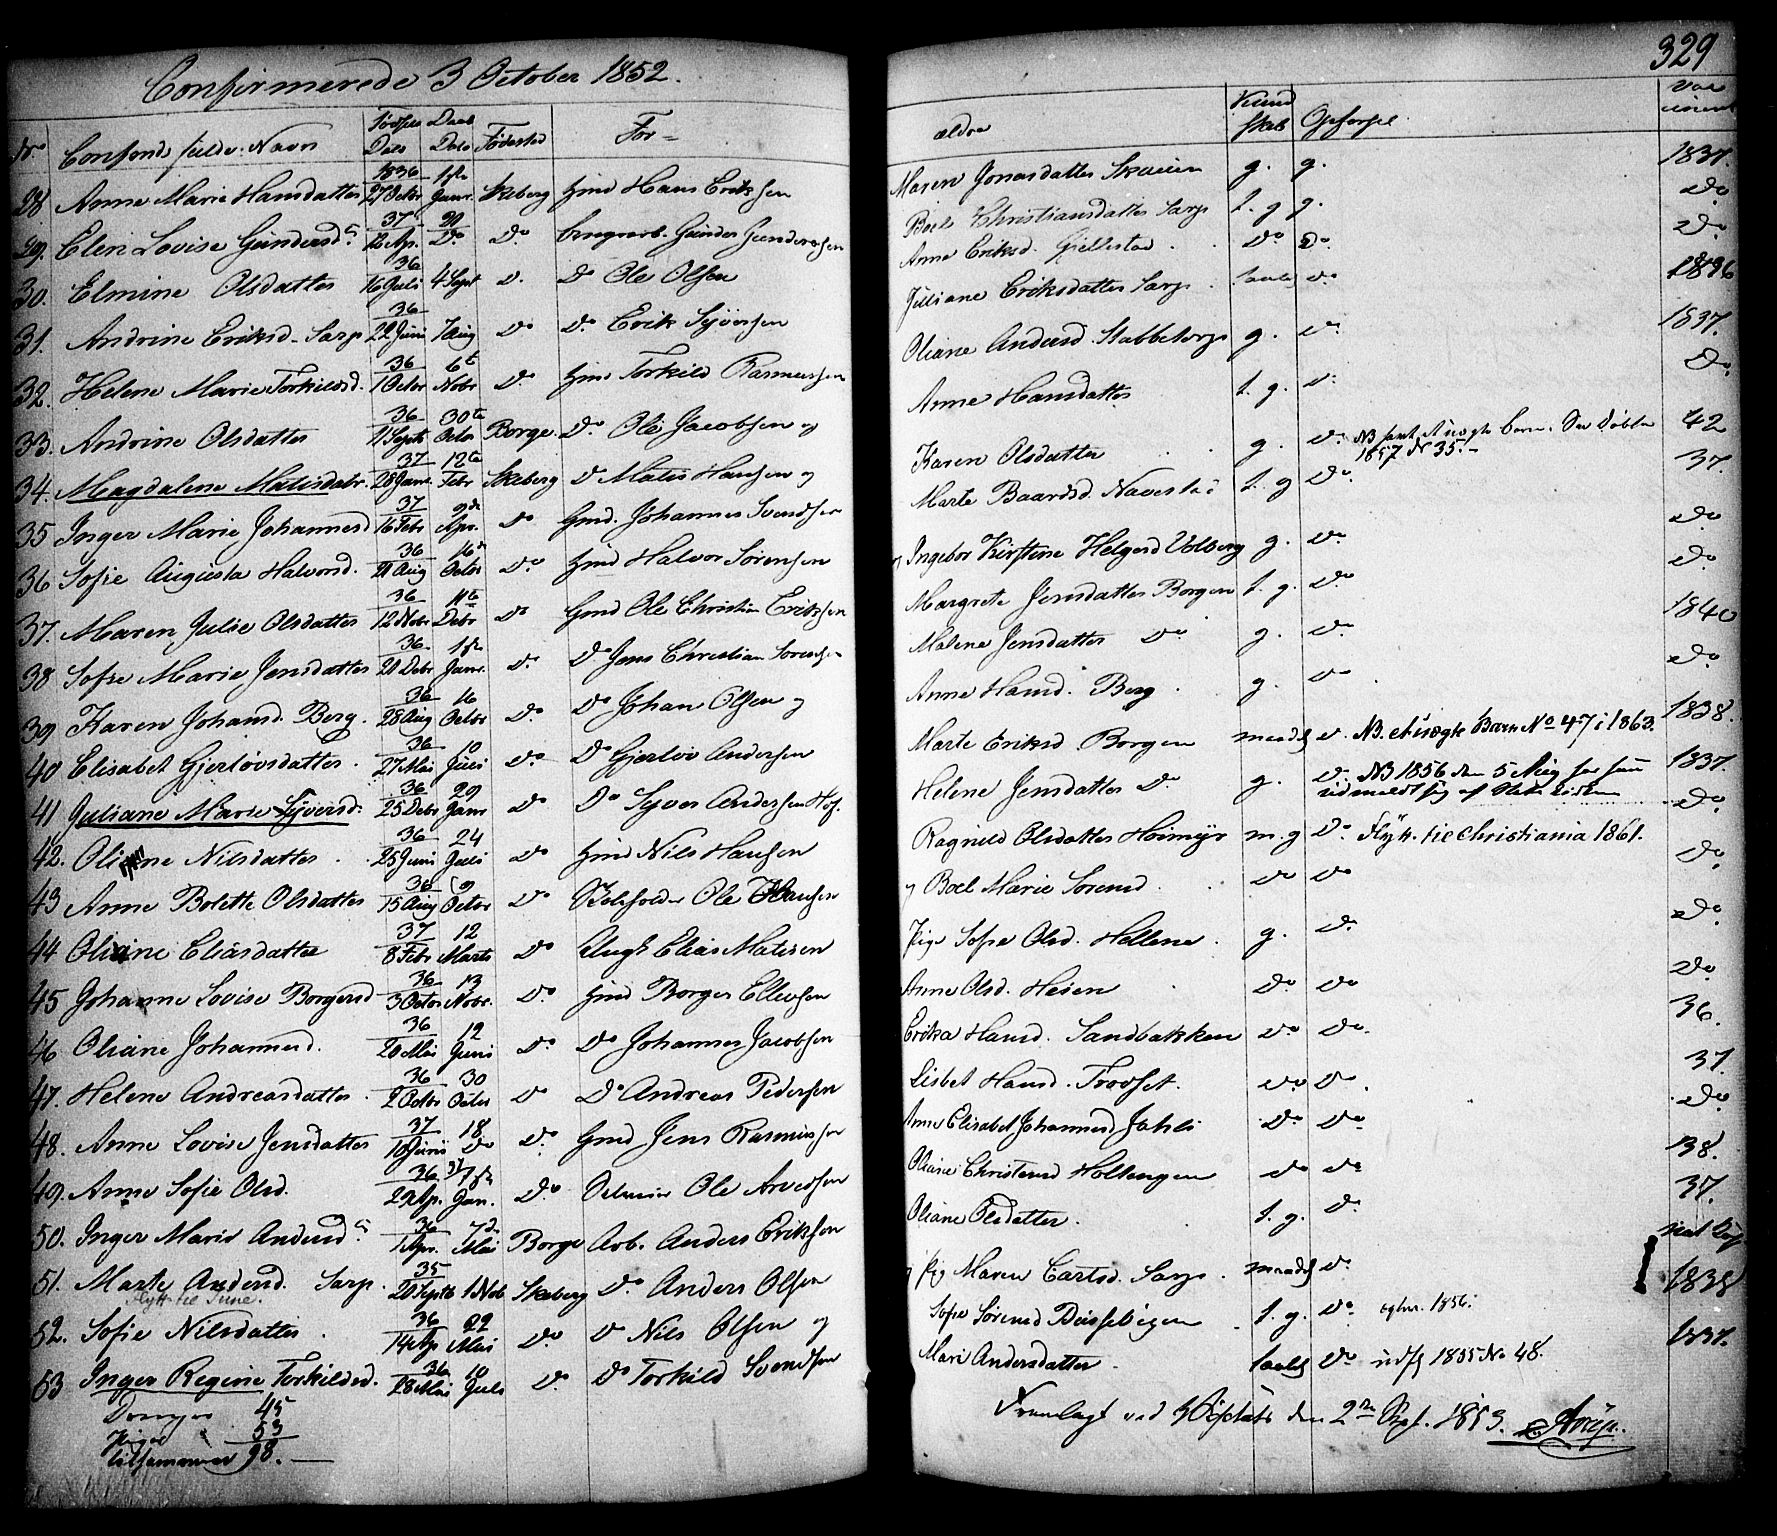 329
Confirmerede 3 October 1852.
No Navn Fødsels Dato Daab Dato Fødested For- ældre Kund skab Opførsel Vac cineret
28 Anne Marie Hansdatter 1836 27 Octbr 1ste Janr. Skeberg Gmd Hans Eriksen Maren Jonasdatter g. g. 1837.
29. Elen Lovise Gunderd. 37 12 Ap. Do Do Gunder Gundersen Boel Christiansdatter Sarp t. g g. Do
30. Elmine Olsdatter 36 16 Juli 4 Sept D. Do Ole Olsen Anne Eriksd. Gjellestad Do Do Do
31. Andrine Eriksd. Sarp 36 22 Juni 7 Aug Do Do Erik Syversen Juliane Eriksdatter Sarp Do 1836
32. Helene Marie Torkildsd. 36 1 Octbr 6te Nobr Do Gmd Torkild Rasmussen Oliane Andersd Stabbetorp g. Do 1837.
33. Andrine Olsdatter 36 11 Septb 30te Octbr Borge. Do Ole Jacobsen og Anne Hansdatter t. g. Do Do
34. Magdalene Matisdatr. 37 28 Janr. 12te Febr Skeberg Do Matis Hansen og Karen Olsdatter g. Do NB født et uægte barn. See Døbte 1857 No 35. 42
35 Inger Marie Johannesd 37 16 Febr 9de Apr. Do Gmd. Johannes Svendsen Marte Baardsd. Navestad t. g Do 37.
36 Sofie Augusta Halvorsd. 36 21 Aug 16de Octbr Do Gmd Halvor Sørensen og Ingebor Kirstine Helgesd Volberg g. Do Do
37. Maren Julie Olsdatter 36 12 Nobr 11te Debr Do Gmd Ole Christian Eriksen Margrete Jensdatter Borgen t. g. Do Do
38 Sofie Marie Jensdatter 36 21 Debr 1ste Janr. Do Do Jens Christian Sørensen Malene Jensdatter Do g. Do 1840
39 Karen Johansd. Berg. 36 28 Aug 16 Octbr Do Do Johan Olsen og Anne Hansd. Berg. g. Do Do
40 Elisabet Gjerløvsdatter. 36 27 Mai 10 Juli Do Do Gjerløv Andersen Marte Eriksd. Borgen maadl D. NB. et uægte Barn No 47 i 1863. 1838.
41 Juliane Marie Syversd. 36 25 Debr 29 Janr Do Do Syver Andersen Hof. Helene Jensdatter Do g. D. NB 1856 den 5 Aug har hun udmeldt sig af Statskirken 1837.
42. Nilsdatter. 36 25 Juni 24 Juli Do Gmd Nils Hansen Ragnild Olsdatter m. g Do Flytt. til Christiania 1861. Do
43 Anne Bolette Olsdatter 36 15 Aug 9 Octbr Do Ole Hansen og Boel Marie Sørensd. Do Do Do
44 Oliane Eliasdatter 37 8 Febr 12 Marts Do Ungk Elias Matisen Pige Sofie Olsd. Hellene. g. Do Do
45 Johanne Lovise Borgersd 36 3 Octbr 13 Nobr. Do Gmd Borger Ellevsen Anne Olsd. Heien Do Do Do
46 Oliane Johannesd. 36 20 Mai 12 Juni Do Do Johannes Jacobsen Erika Hansd. Sandbakken Do Do 36.
47. Helene Andreasdatter. 36 2 Octbr 30 Octbr Do Do Andreas Pedersen Lisbet Hansd. Do Do 37.
48. Anne Lovise Jensdatter 37 10 Juni 18 Do Do Gmd Jens Rasmussen Anne Elisabet Johannesd Do Do Do
49. Anne Sofie Olsd. 36 29 Ap. 37 1ste Jan. Do Ole Arvesen Oliane Christensd Holtengen Do Do 38.
50. Inger Marie Andersd. 36 1 Apr. 7de Mai Borge Arb. Anders Eriksen Oliane Olsdatter. t. g. Do 37.
51. Marte Andersd. Sarp. 35 20 Septb 1 Nob Skeberg Do Anders Olsen og Pig Maren Sarp. maadl Do
Flytt. til Tune.
52. Sofie Nilsdatter. 36 14 Ap 22 Mai Do Do Nils Olsen og Sofie Sørensd t. g. Do 1856. 1838
53 Inger Regine Torkildsd. 36 28 Mai 10 Juli Do Do Torkild Svendsen Mari Andersdatter. Do 1855 No 48. 1837.
Drenge 45
Piger 53
tilsammen 98.
Fremlagt ved den 2den Sept. 1853.